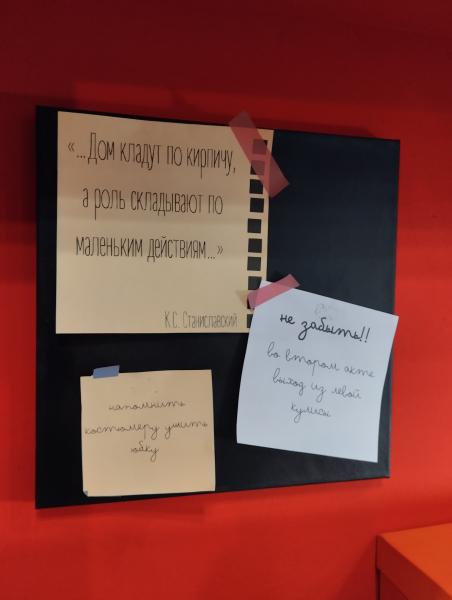 «...Дом кладут по кирпичу,
а роль складывают по
маленьким действиям...»
К.С. Станиславский
не забыть!!
во втором акте
выход из левой
кулисы
напомнить
костюмеру ушить
юбку